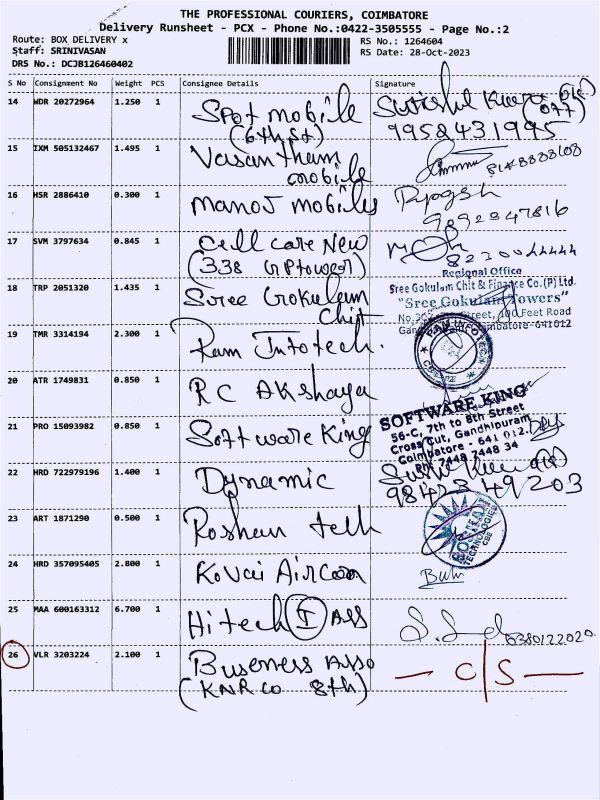 THE PROFESSIONAL COURIERS, COIMBATORE
Delivery Runsheet - PCX - Phone No.:0422-3505555 - Page No.:2
Route: BOX DELIVERY x
Staff: SRINIVASAN
RS No.: 1264604
RS Date: 28-Oct-2023
DRS No.: DCJB126460402
S No Consignment No Weight PCS Consignee Details Signature
14 WDR 20272964 1.250 1 Spot mobile
(6th St)
9958431995
15 IXM 505132467 1.495 1 Vasantham
mobile
16 HSR 2886410 0.300 1 Manoj mobiles
9892347816
17 SVM 3797634 0.845 1 Cell care New
(338 GP tower)
8230044444
18 TRP 2051320 1.435 1 Sree Gokulam
Chit
Regional Office
Sree Gokulam Chit & Finance Co.(P) Ltd.
"Sree Gokulam Towers"
Street, 100 Feet Road
Coimbatore-641012
19 TMR 3314194 2.300 1 Ram Infotech.
RAM INFOTECH
20 ATR 1749831 0.850 1 RC Akshaya
21 PRO 15093982 0.850 1 Software King
SOFTWARE KING
56-C, 7th to 8th Street
Cross Cut, Gandhipuram
Coimbatore - 641 012.
Ph: 7448 7448 34
22 HRD 722979196 1.400 1 Dynamic
9842349203
23 ART 1871290 0.500 1 Roshan tech
TECHNOLOGIES
CBE
24 HRD 357095405 2.800 1 Kovai Aircon
25 MAA 600163312 6.700 1 Hitech I Ass
6380122020
26 VLR 3203224 2.100 1 Buseness Asso
(KNR Co 8th)
— C/S —